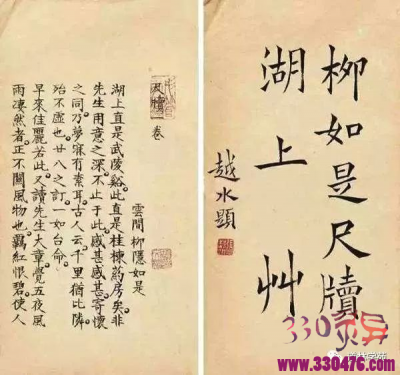 柳如是尺牘
湖上艸
越水題
尺牘
卷
雲間 柳隱如是
湖上直是武陵谿。此直是桂棟葯房矣。非
先生用意之深。不止于此。感甚感甚。寄懷
之同。乃夢寐有素耳。古人云千里猶比隣。
殆不虛也。廿八之訂。一如台命。
早來佳麗若此。又讀先生大章。覺五夜風
雨凄然者。正不關風物也。羈紅恨碧。使人
330
www.330476.com